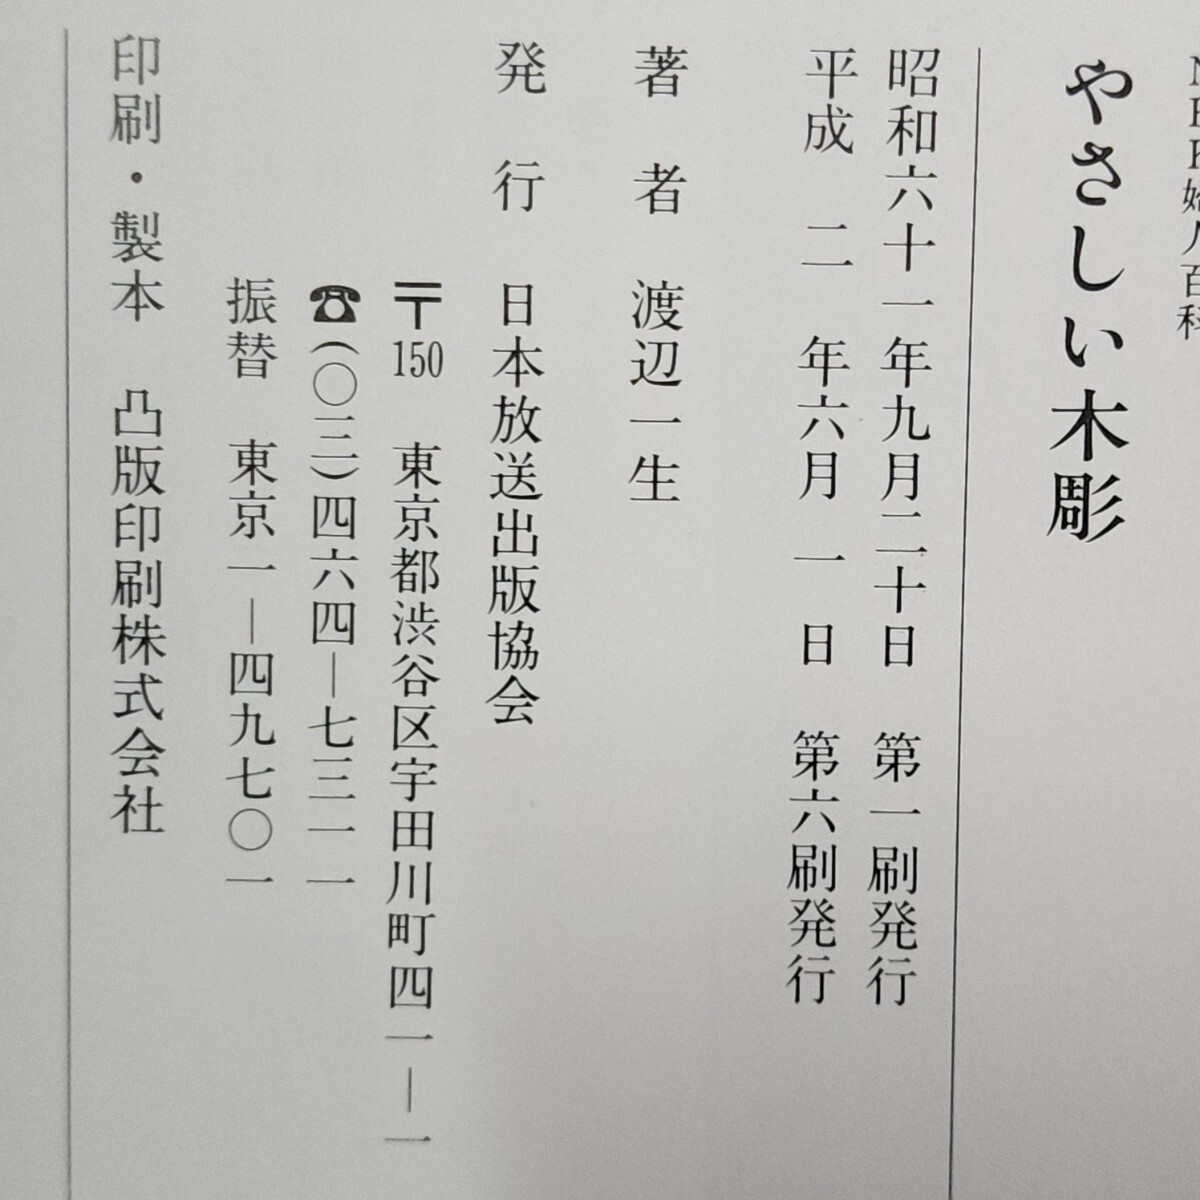 やさしい木彫
昭和六十一年九月二十日 第一刷発行
平成 二 年六月 一 日 第六刷発行
著 者 渡辺一生
発 行 日本放送出版協会
〒150 東京都渋谷区宇田川町四一―一
☎(〇三)四六四―七三一一
振替 東京一―四九七〇一
印刷・製本 凸版印刷株式会社